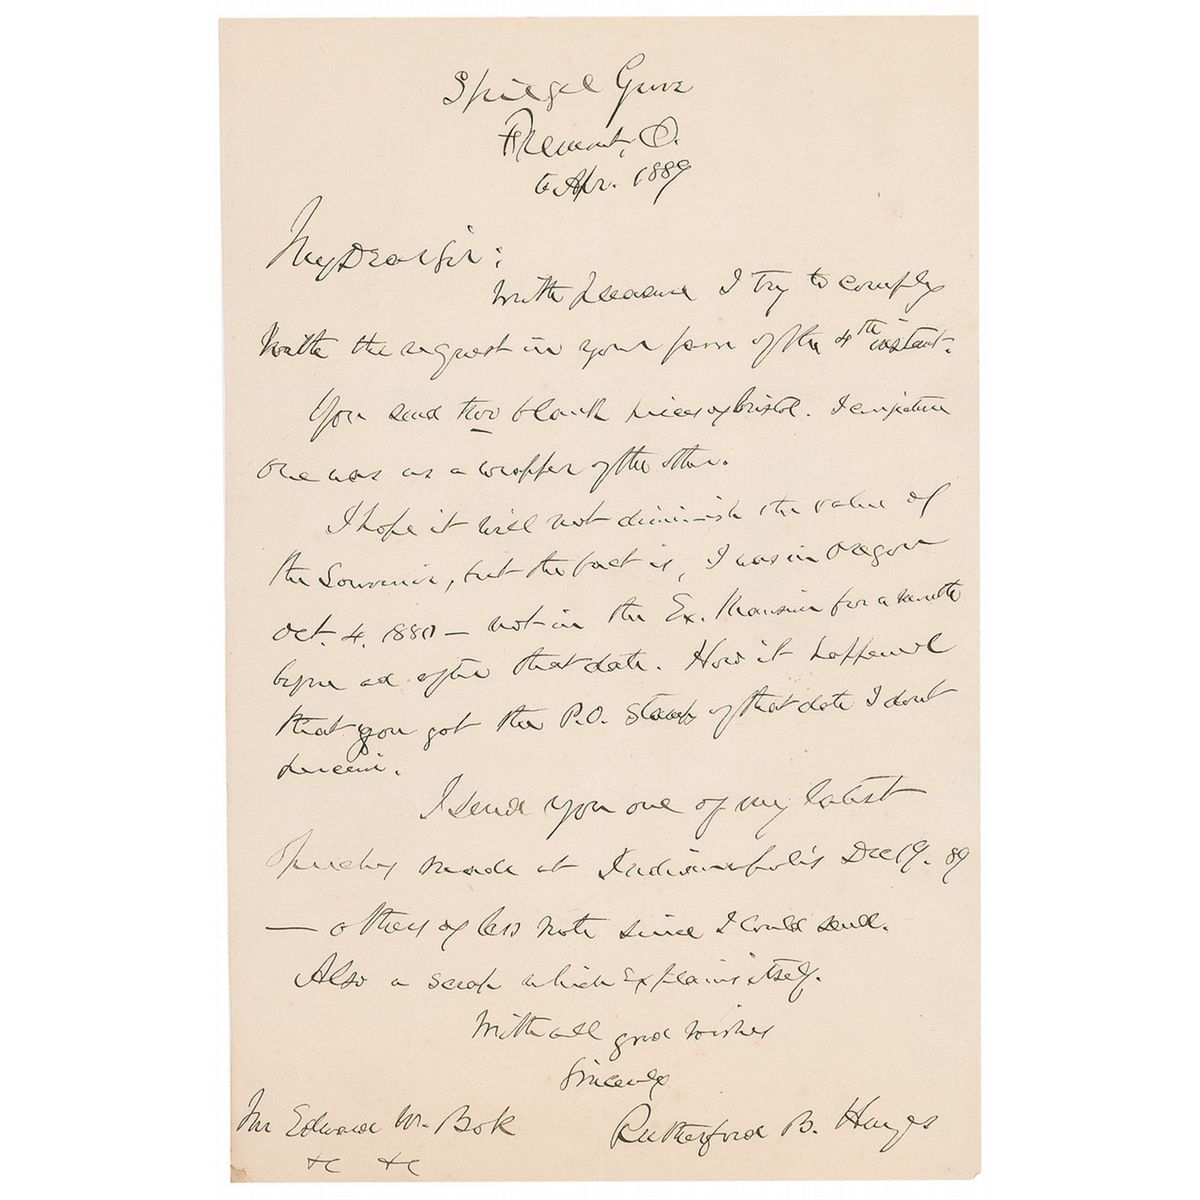 Spiegel Grove
Fremont, O.
6 Apr. 1889
My Dear Sir:
With pleasure I try to comply
with the request in your favor of the 4th instant.
You send two blank pieces of bristol. I conjecture
one was as a wrapper of the other.
I hope it will not diminish the value of
the Souvenir, but the fact is, I was in Oregon
Oct. 4, 1880 — not in the Ex. Mansion for a month
before and after that date. How it happened
that you got the P.O. Stamp of that date I dont
perceive.
I send you one of my latest
speeches made at Indianapolis Dec 19. 89
— others of less note since I could send.
Also a scrap which explains itself.
With all good wishes
Sincerely
Rutherford B. Hayes
Mr Edward W. Bok
&c &c